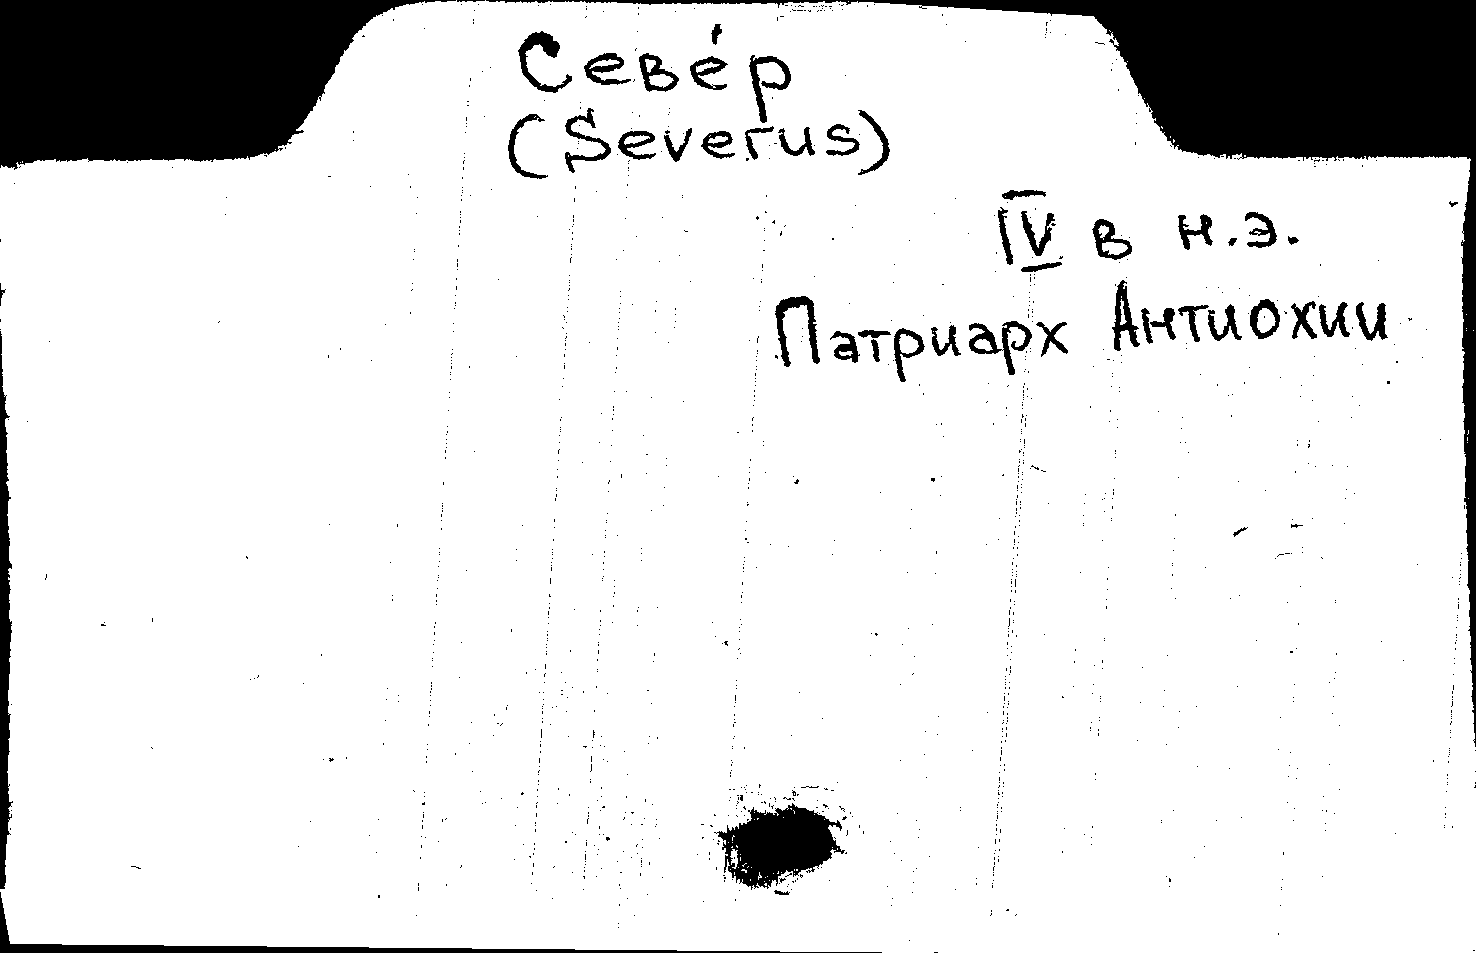 Севе́р
(Severus)
IV в н.э.
Патриарх Антиохии